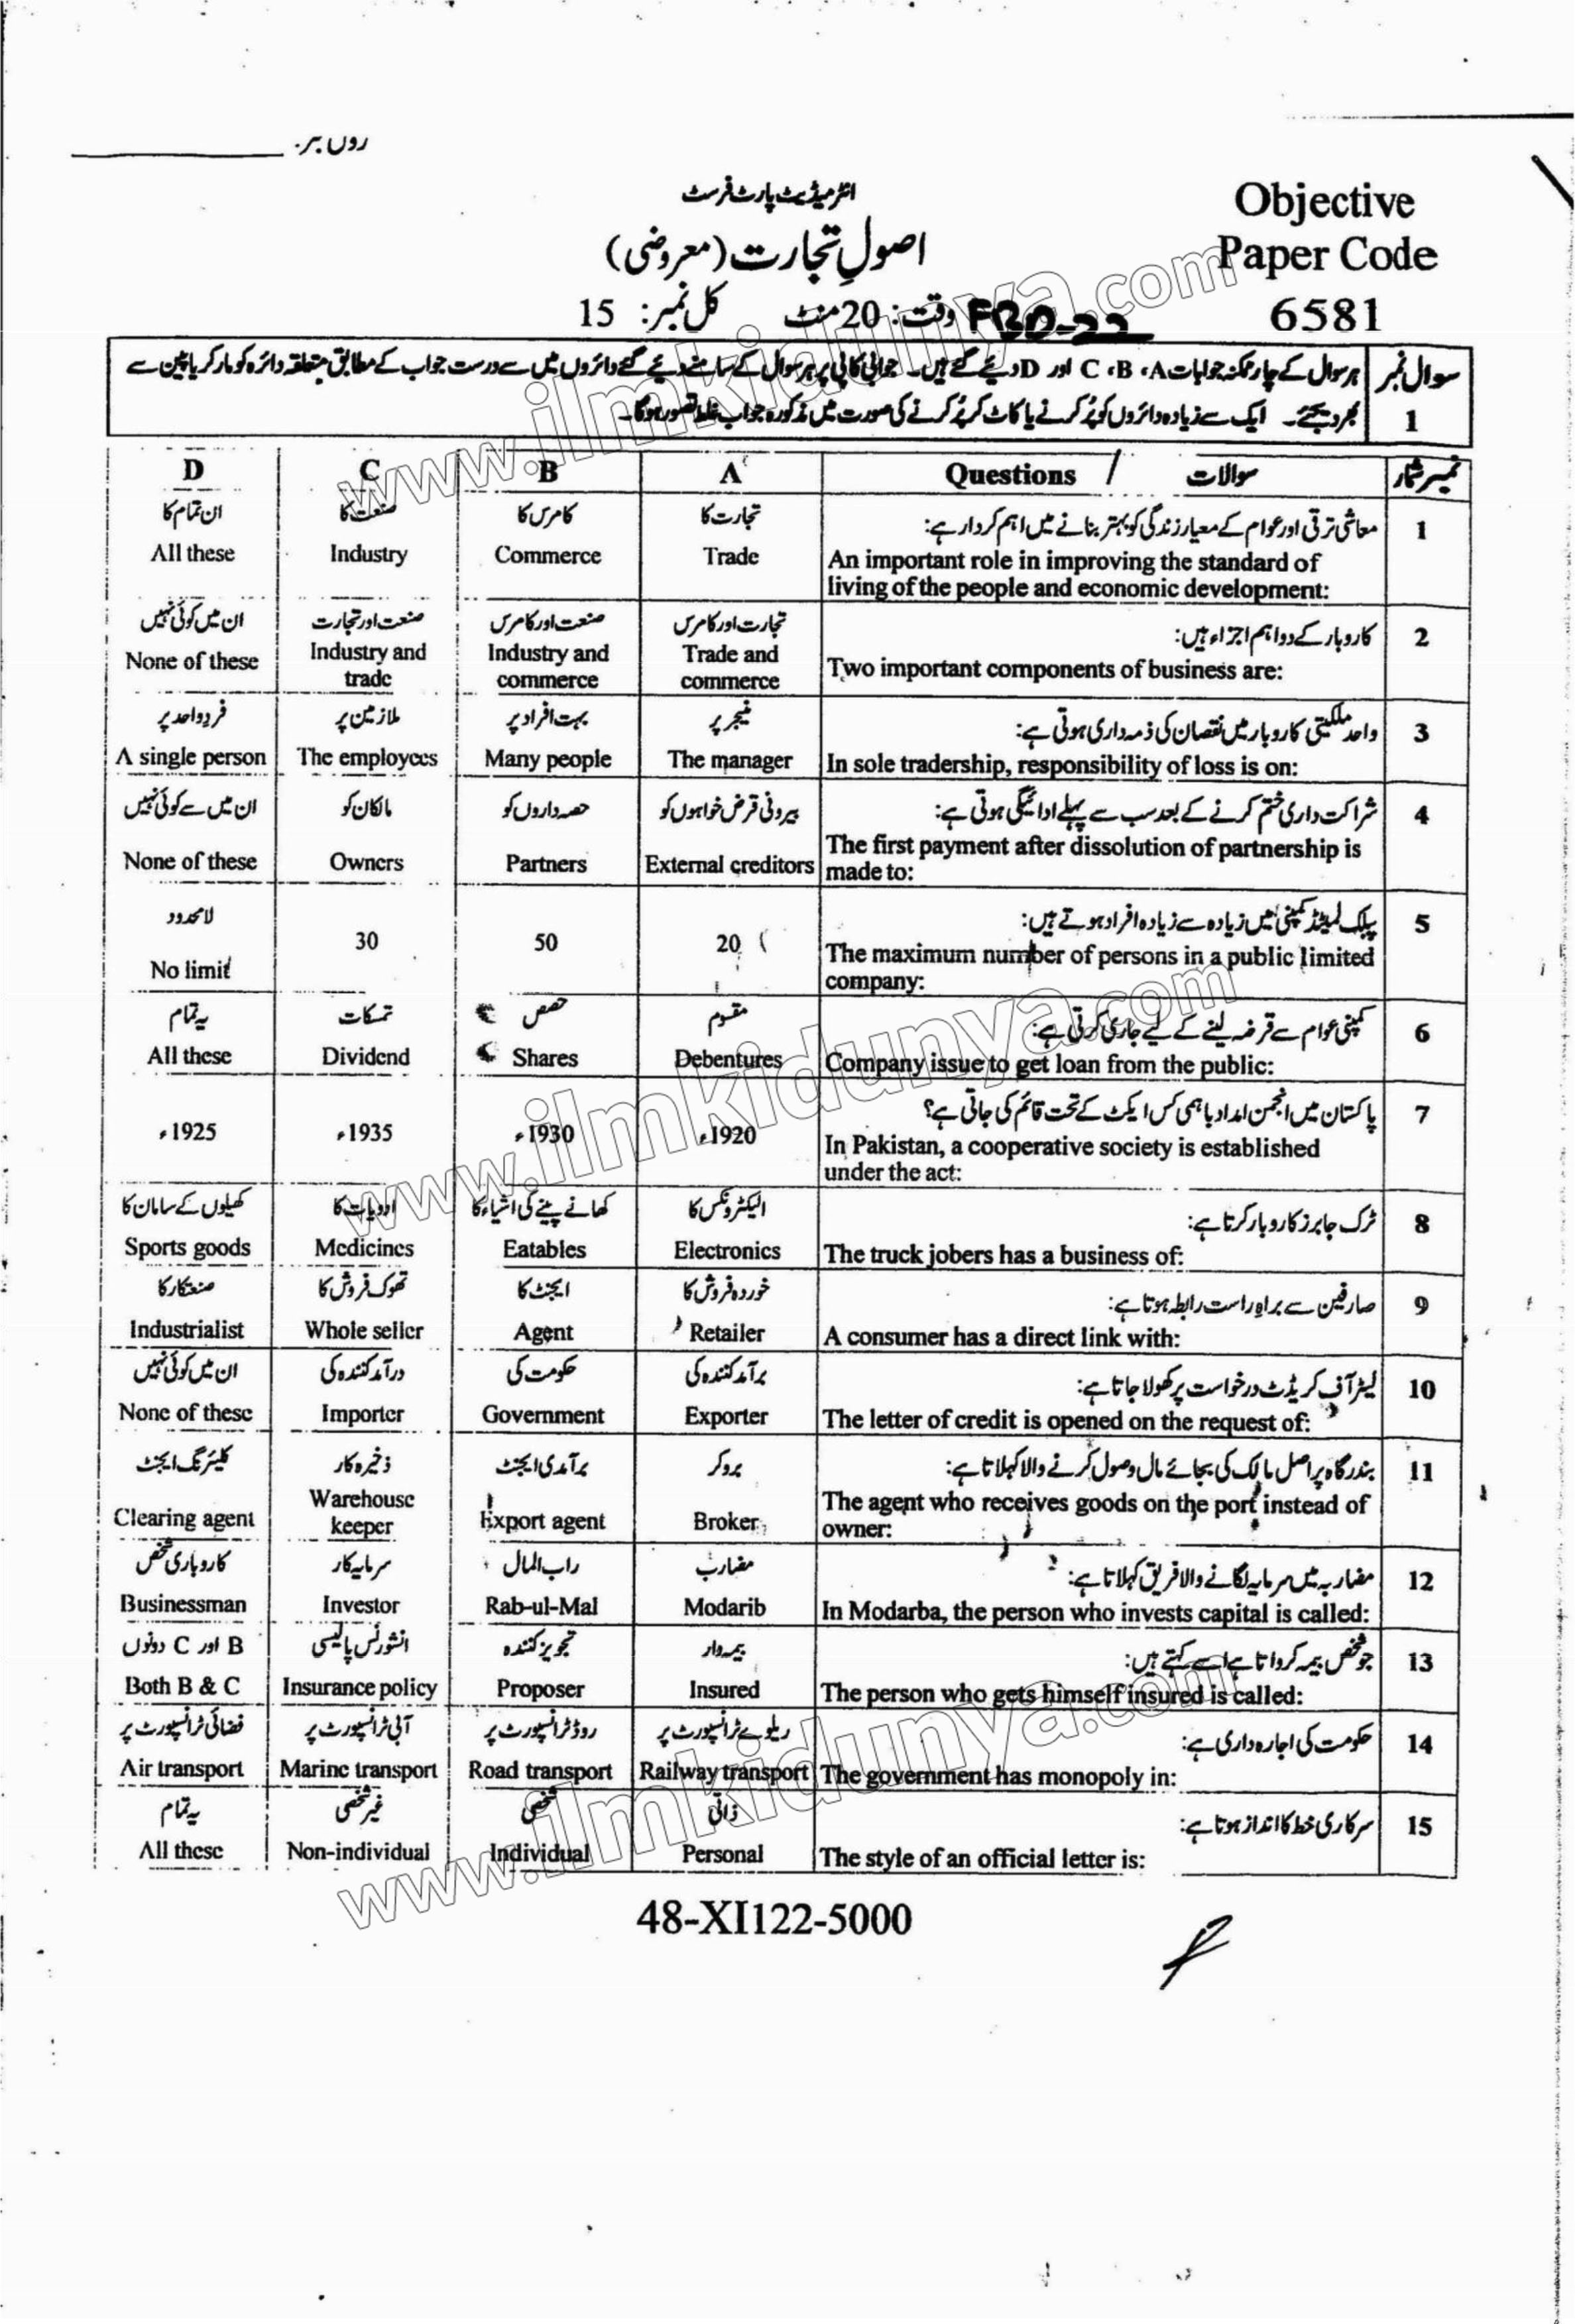 انٹرمیڈیٹ پارٹ فرسٹ
Objective
اصولِ تجارت (معروضی)
Paper Code
وقت: 20 منٹ کل نمبر: 15
6581
FBD-22
سوال نمبر 1
ہر سوال کے چار ممکنہ جوابات A، B، C اور D دیئے گئے ہیں۔ جوابی کاپی پر ہر سوال کے سامنے دیئے گئے دائروں میں سے درست جواب کے مطابق متعلقہ دائرہ کو مارکر یا پین سے
بھر دیجئے۔ ایک سے زیادہ دائروں کو پُر کرنے یا کاٹ کر پُر کرنے کی صورت میں مذکورہ جواب غلط تصور ہوگا۔
نمبر شمار سوالات / Questions A B C D
1 معاشی ترقی اور عوام کے معیار زندگی کو بہتر بنانے میں اہم کردار ہے:
An important role in improving the standard of
living of the people and economic development:
تجارت کا کامرس کا صنعت کا ان تمام کا
Trade Commerce Industry All these
2 کاروبار کے دو اہم اجزاء ہیں:
Two important components of business are:
تجارت اور کامرس صنعت اور کامرس صنعت اور تجارت ان میں کوئی نہیں
Trade and commerce Industry and commerce Industry and trade None of these
3 واحد ملکیتی کاروبار میں نقصان کی ذمہ داری ہوتی ہے:
In sole tradership, responsibility of loss is on:
منیجر پر بہت افراد پر ملازمین پر فرد واحد پر
The manager Many people The employees A single person
4 شراکت داری ختم کرنے کے بعد سب سے پہلے ادائیگی ہوتی ہے:
The first payment after dissolution of partnership is
made to:
بیرونی قرض خواہوں کو حصہ داروں کو مالکان کو ان میں سے کوئی نہیں
External creditors Partners Owners None of these
5 پبلک لمیٹڈ کمپنی میں زیادہ سے زیادہ افراد ہوتے ہیں:
The maximum number of persons in a public limited
company:
لامحدود
20 50 30 No limit
6 کمپنی عوام سے قرضہ لینے کے لیے جاری کرتی ہے:
Company issue to get loan from the public:
مقسوم حصص تمسکات یہ تمام
Debentures Shares Dividend All these
7 پاکستان میں انجمن امداد باہمی کس ایکٹ کے تحت قائم کی جاتی ہے؟
In Pakistan, a cooperative society is established
under the act:
1920ء 1930ء 1935ء 1925ء
8 ٹرک جابرز کاروبار کرتا ہے:
The truck jobers has a business of:
الیکٹرونکس کا کھانے پینے کی اشیاء کا ادویات کا کھیلوں کے سامان کا
Electronics Eatables Medicines Sports goods
9 صارفین سے براہ راست رابطہ ہوتا ہے:
A consumer has a direct link with:
خوردہ فروش کا ایجنٹ کا تھوک فروش کا صنعتکار کا
Retailer Agent Whole seller Industrialist
10 لیٹر آف کریڈٹ درخواست پر کھولا جاتا ہے:
The letter of credit is opened on the request of:
برآمد کنندہ کی حکومت کی درآمد کنندہ کی ان میں کوئی نہیں
Exporter Government Importer None of these
11 بندرگاہ پر اصل مالک کی بجائے مال وصول کرنے والا کہلاتا ہے:
The agent who receives goods on the port instead of
owner:
بروکر برآمدی ایجنٹ ذخیرہ کار کلیئرنگ ایجنٹ
Broker Export agent Warehouse keeper Clearing agent
12 مضاربہ میں سرمایہ لگانے والا فریق کہلاتا ہے:
In Modarba, the person who invests capital is called:
مضارب راب المال سرمایہ کار کاروباری شخص
Modarib Rab-ul-Mal Investor Businessman
13 جو شخص بیمہ کرواتا ہے اسے کہتے ہیں:
The person who gets himself insured is called:
بیمہ دار تجویز کنندہ انشورنس پالیسی B اور C دونوں
Insured Proposer Insurance policy Both B & C
14 حکومت کی اجارہ داری ہے:
The government has monopoly in:
ریلوے ٹرانسپورٹ پر روڈ ٹرانسپورٹ پر آبی ٹرانسپورٹ پر فضائی ٹرانسپورٹ پر
Railway transport Road transport Marine transport Air transport
15 سرکاری خط کا انداز ہوتا ہے:
The style of an official letter is:
ذاتی شخصی غیر شخصی یہ تمام
Personal Individual Non-individual All these
48-XI122-5000
www.ilmkidunya.com
www.ilmkidunya.com
www.ilmkidunya.com